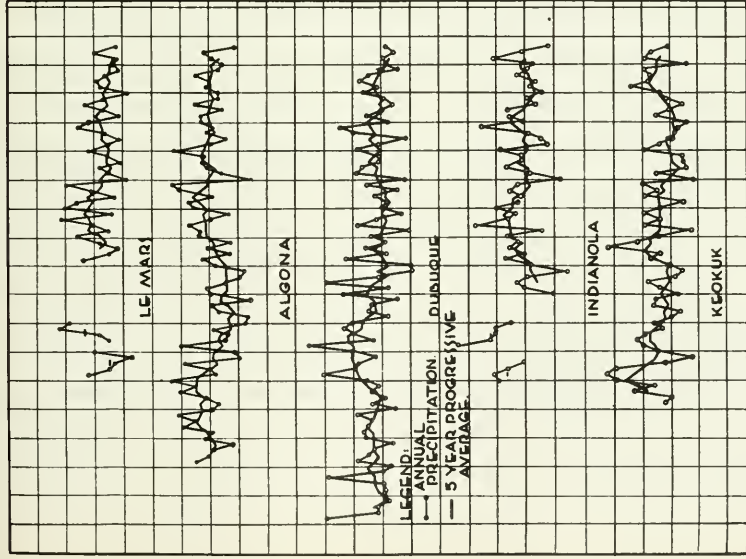 LE MARS
ALGONA
DUBUQUE
INDIANOLA
KEOKUK
LEGEND:
ANNUAL
PRECIPITATION.
5 YEAR PROGRESSIVE
AVERAGE.